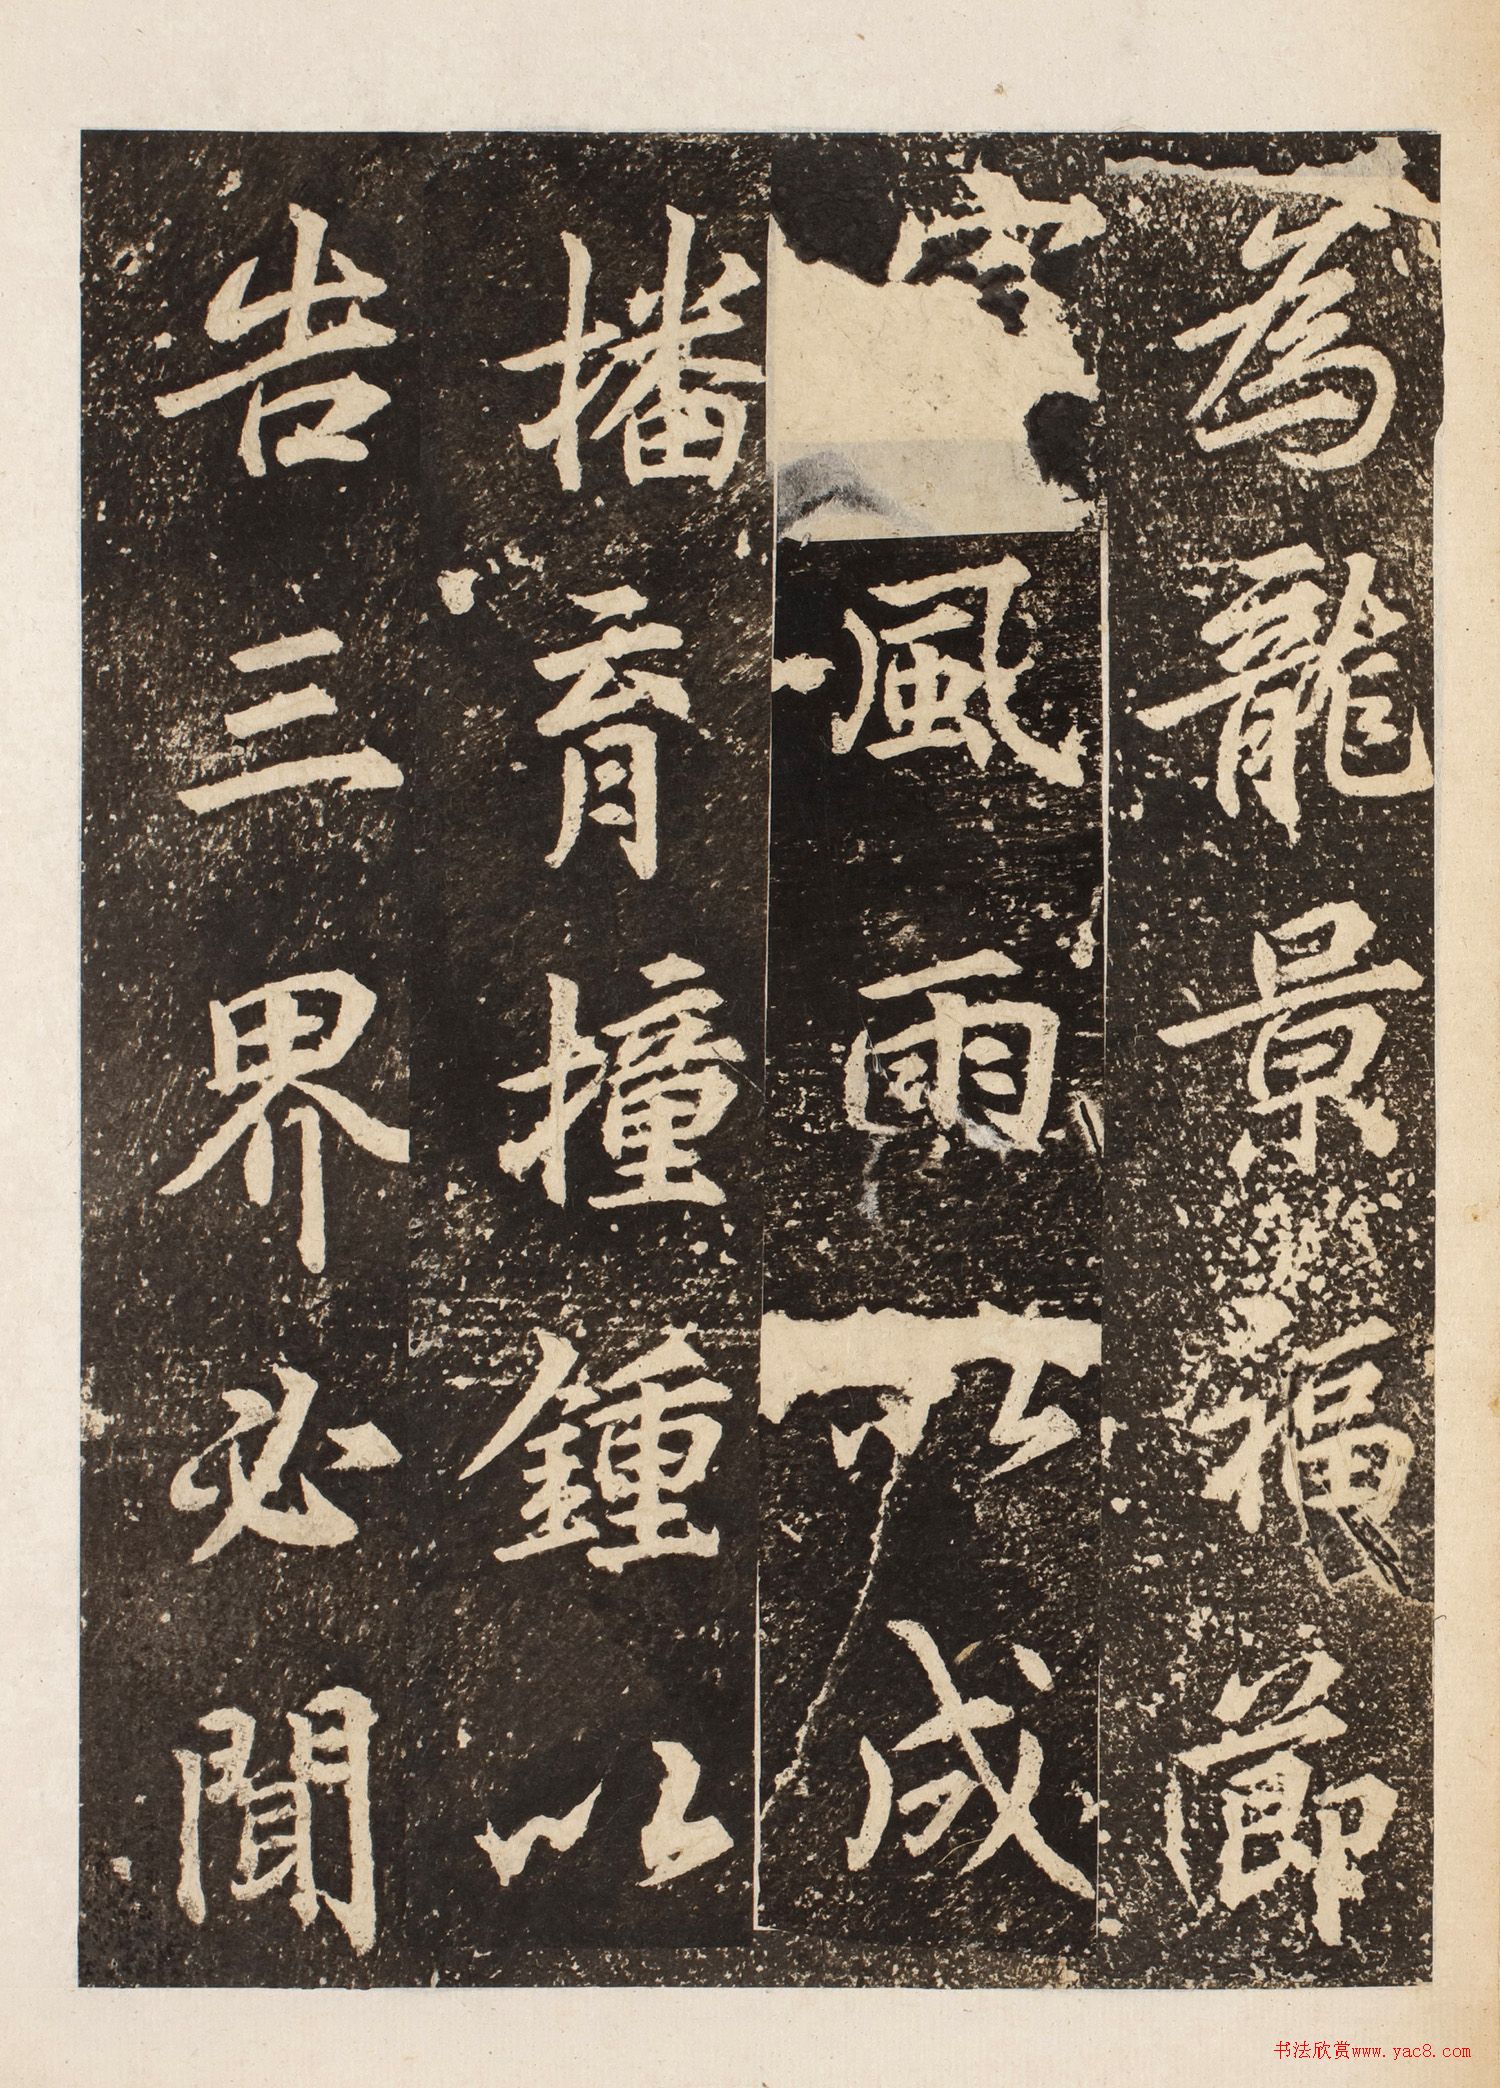 為龍景福節
風雨以成
播育撞鍾以
告三界必聞
书法欣赏www.yac8.com